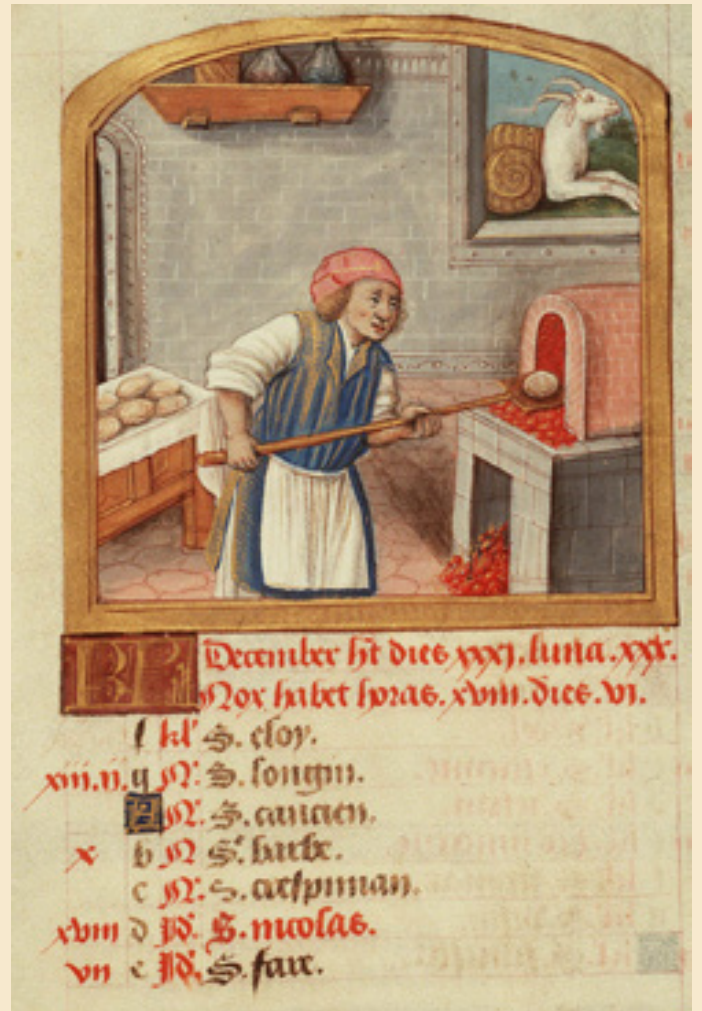 KL December hēt dies xxxj. luna. xxx.
Nox habet horas. xviii. dies. vi.
f kl' S. eloy.
xiii. ii. g N. S. longin.
A N. S. cancien.
x b N S'. barbe.
c N. S. crespinian.
xviii d Id. S. nicolas.
vii e Id. S. fare.